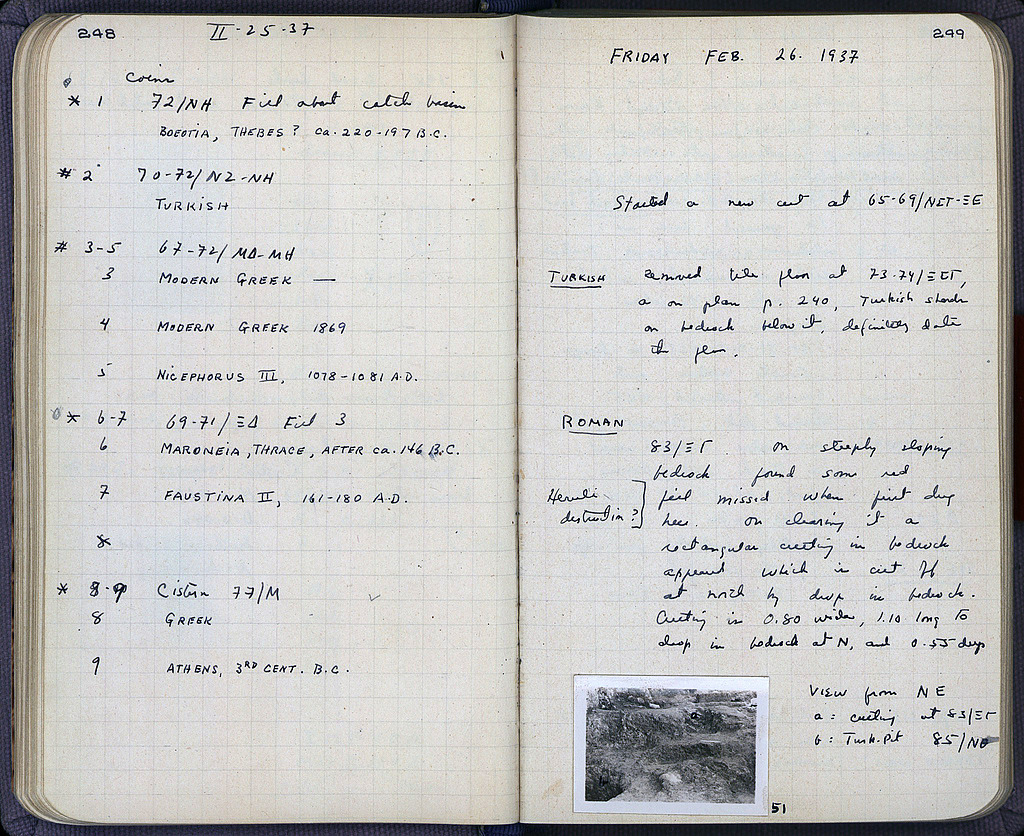 248
II-25-37
Coins
* 1 72/NH Fill about catch basin
BOEOTIA, THEBES? ca. 220-197 B.C.
# 2 70-72/NZ-NH
TURKISH
# 3-5 67-72/MΔ-MH
3 MODERN GREEK —
4 MODERN GREEK 1869
5 NICEPHORUS III, 1078-1081 A.D.
* 6-7 69-71/ΞΔ Fill 3
6 MARONEIA, THRACE, AFTER ca. 146 B.C.
7 FAUSTINA II, 161-180 A.D.
8
* 8-9 Cistern 77/M
8 GREEK
9 ATHENS, 3RD CENT. B.C.
249
FRIDAY FEB. 26. 1937
Started a new cut at 65-69/
TURKISH Removed tile floor at 73-74/
a on plan p. 240, Turkish sherds
on bedrock below it, definitely date
the floor.
ROMAN
83/ΞΓ On steeply sloping
bedrock found some red
fill missed when first dug
here. On clearing it a
rectangular cutting in bedrock
appeared which is cut off
at north by drop in bedrock.
Cutting is 0.80 wide, 1.10 long to
drop in bedrock at N, and 0.55 deep
Heruli destruction?
View from NE
a: cutting at 83/ΞΓ
b: Turk. Pit 85/
51